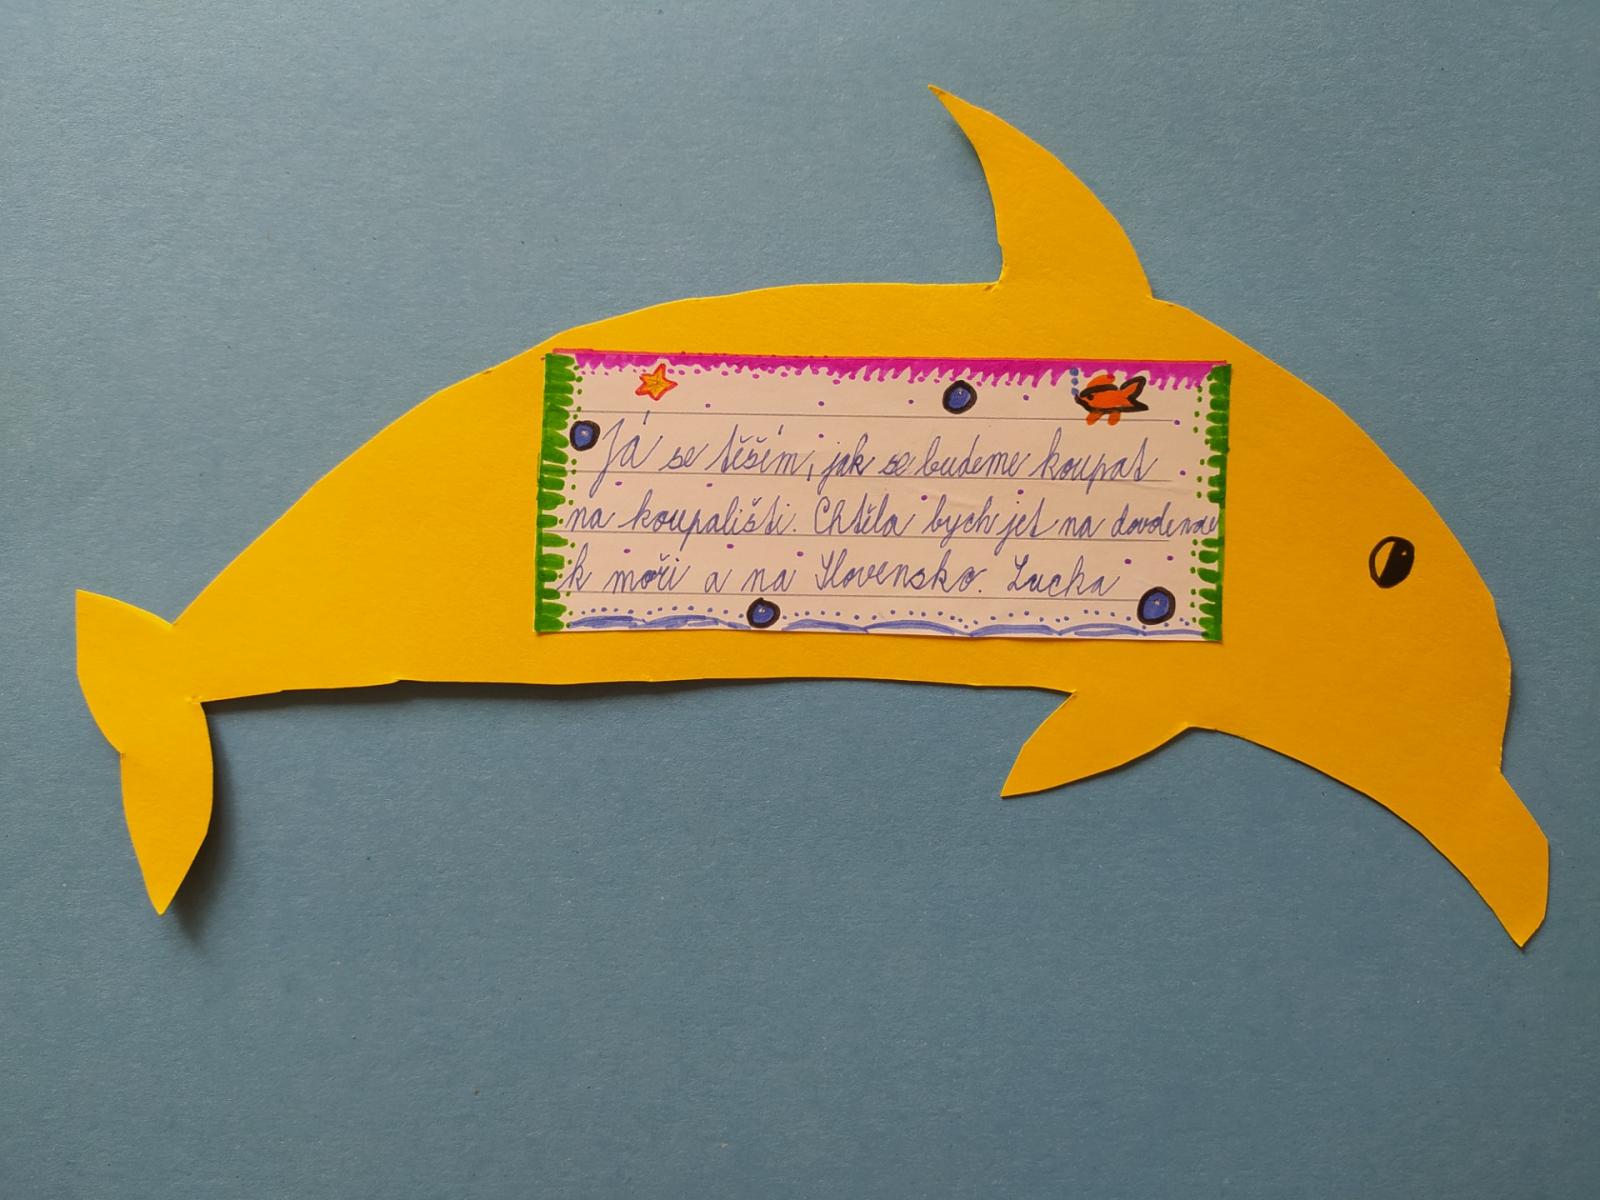 Já se těším, jak se budeme koupat
na koupališti. Chtěla bych jet na dovolenou
k moři a na Slovensko. Lucka